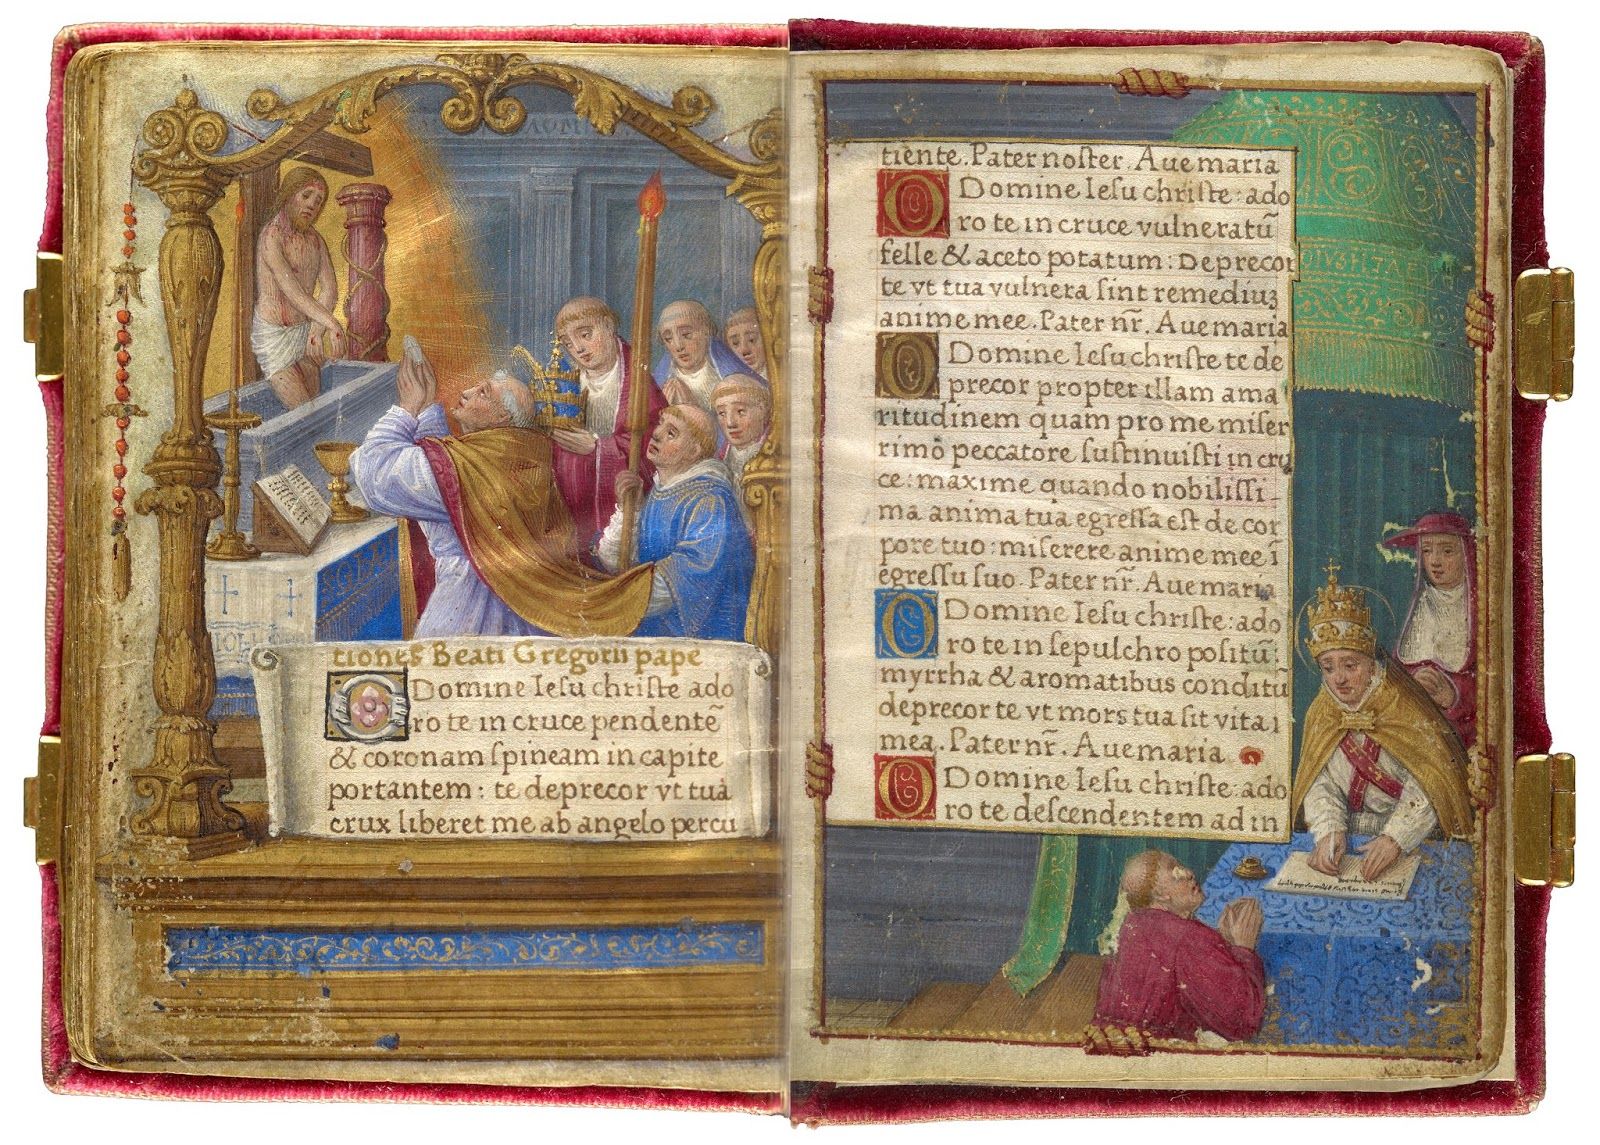 tiones Beati Gregorii pape
O Domine Iesu christe ado
ro te in cruce pendentē
& coronam spineam in capite
portantem: te deprecor vt tuā
crux liberet me ab angelo percu
tiente. Pater noster. Aue maria
O Domine Iesu christe: ado
ro te in cruce vulneratū
felle & aceto potatum: Deprecor
te vt tua vulnera sint remediuꝫ
anime mee. Pater nr̄. Aue maria
O Domine Iesu christe te de
precor propter illam ama
ritudinem quam pro me miser
rimo peccatore sustinuisti in cru
ce: maxime quando nobilissi
ma anima tua egressa est de cor
pore tuo: miserere anime mee ī
egressu suo. Pater nr̄. Aue maria
O Domine Iesu christe: ado
ro te in sepulchro positū:
myrrha & aromatibus conditū
deprecor te vt mors tua sit vita
mea. Pater nr̄. Aue maria
O Domine Iesu christe: ado
ro te descendentem ad in